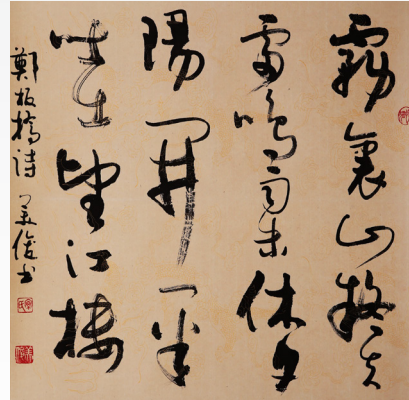 霧裹山疑失
雷鳴雨未休夕
陽開一半
吐出望江樓
鄭板橋詩 美俊书